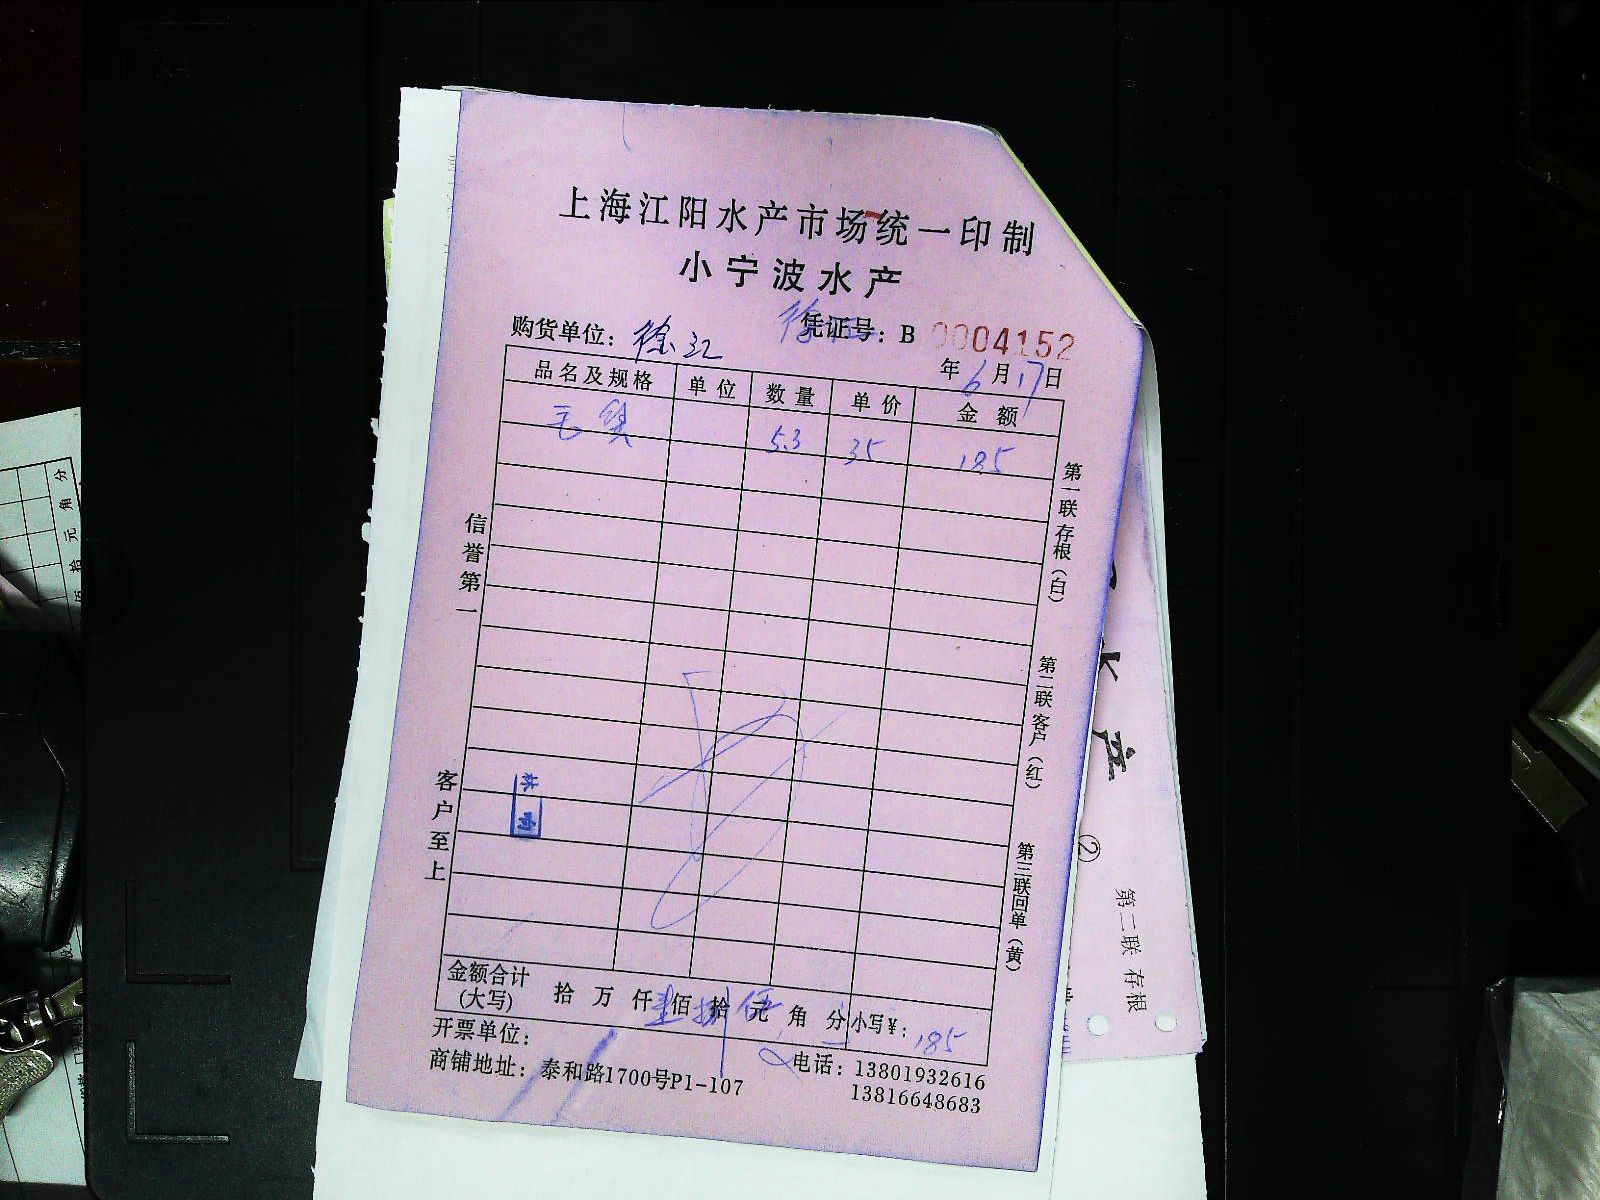 上海江阳水产市场统一印制
小宁波水产
购货单位：徐汇 凭证号：B 0004152
年6月17日
品名及规格 单位 数量 单价 金额
毛 5.3 35 185
信誉第一
客户至上
第一联存根（白）
第二联客户（红）
第三联回单（黄）
金额合计
（大写） 拾 万 仟 壹佰 捌拾 伍元 角 分 小写¥：185
开票单位：
商铺地址：泰和路1700号P1-107 电话：13801932616
13816648683
水产
②
第二联 存根
拾元角分